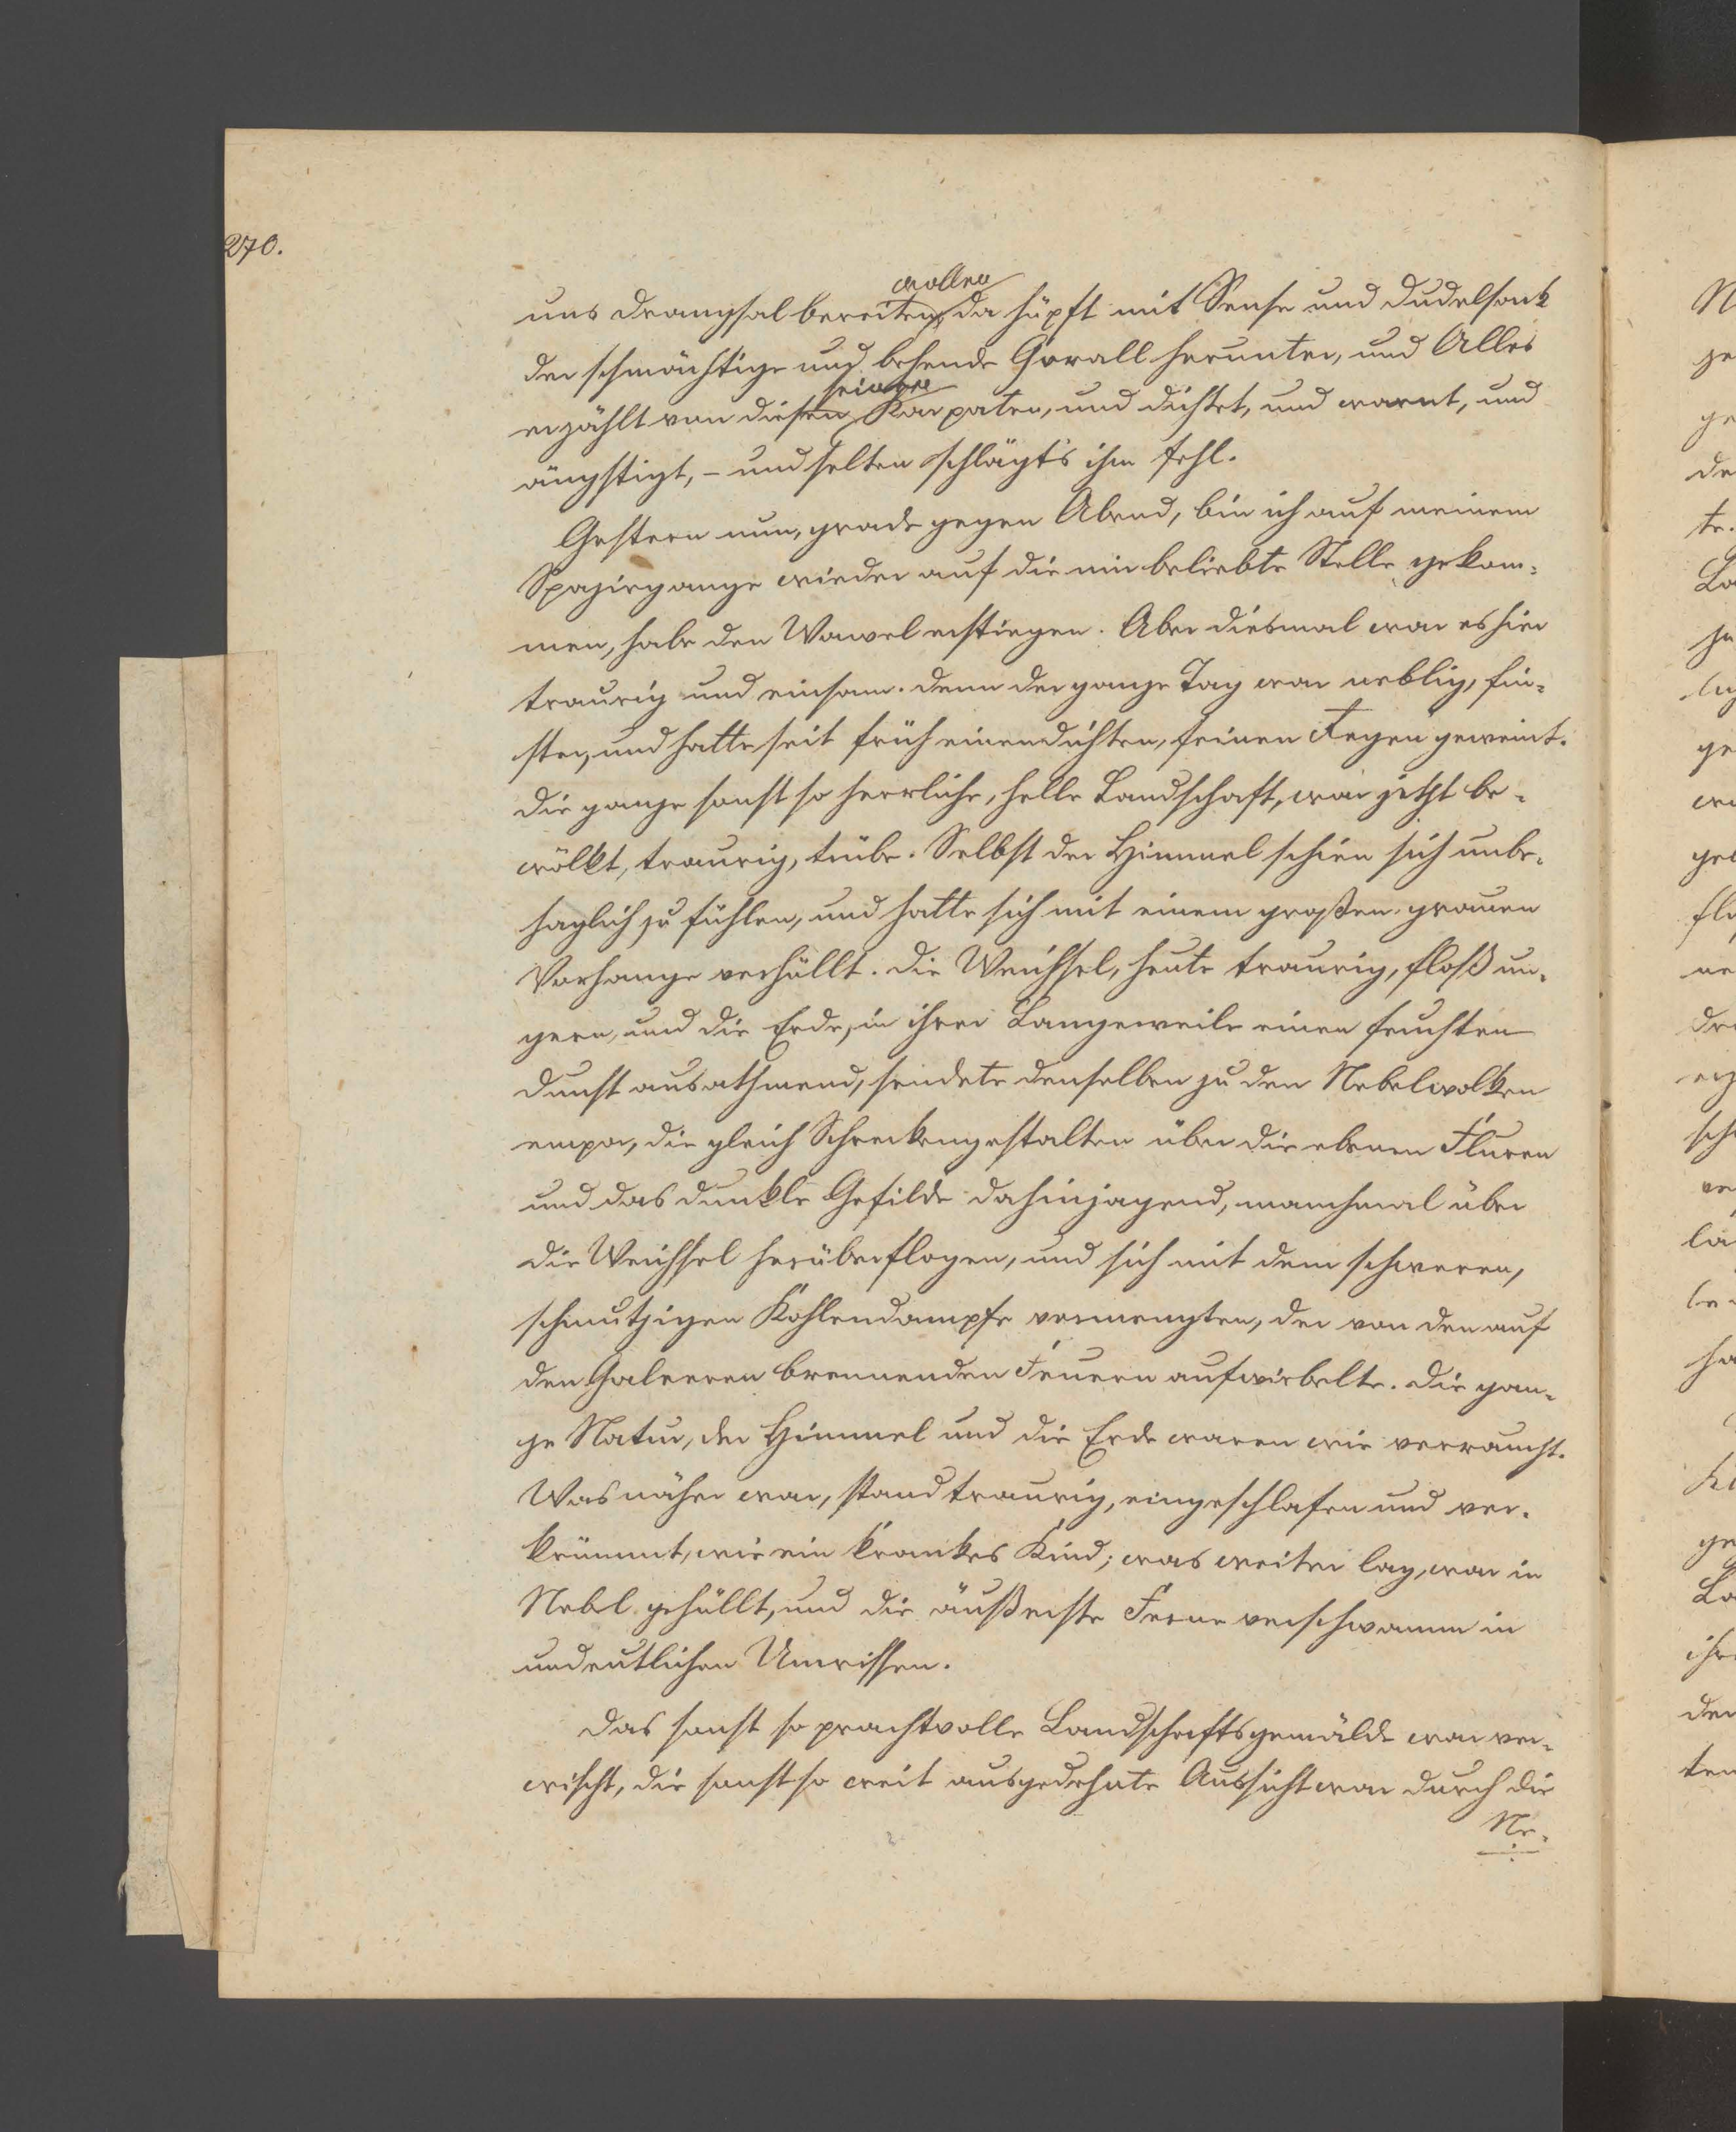 270.
wollen
uns Drangsal bereiten, da hüpft mit Sense und Dudelsack
der schmächtige und behende Gorall herunter, und Alles
seinen
erzählt von diesen Karpaten, und dichtet, und warnt, und
ängstigt, – und selten schlägt's ihm fehl.
Gestern nun, grade gegen Abend, bin ich auf meinem
Spazirgange wieder auf die mir beliebte Stelle gekom-
men, habe den Wawel erstiegen. Aber diesmal war es hier
traurig und einsam. Denn der ganze Tag war neblig, fin-
ster, und hatte seit früh einen dichten, feinen Regen geweint.
Die ganze sonst so herrliche, helle Landschaft, war jetzt be-
wölkt, traurig, trübe. Selbst der Himmel schien sich unbe-
haglich zu fühlen, und hatte sich mit einem großen grauen
Vorhange verhüllt. Die Weichsel, heute traurig, floß un-
gern, und die Erde, in ihrer Langeweile einen feuchten
Dunst ausathmend, sendete denselben zu den Nebelwolken
empor, die gleich Schreckengestalten über die ebenen Fluren
und das dunkle Gefilde dahinjagend, manchmal über
die Weichsel herüberflogen, und sich mit dem schweren,
schmutzigen Kohlendampfe vermengten, der von den auf
den Galeeren brennenden Feuern aufwirbelte. Die gan-
ze Natur, der Himmel und die Erde waren wie verraucht.
Was näher war, stand traurig, eingeschlafen und ver-
krümmt, wie ein krankes Kind; was weiter lag, war in
Nebel gehüllt, und die äußerste Ferne verschwamm in
undeutlichen Umrissen.
Das sonst so prachtvolle Landschaftsgemälde war ver-
wischt, die sonst so weit ausgedehnte Aussicht war durch die
Ne-